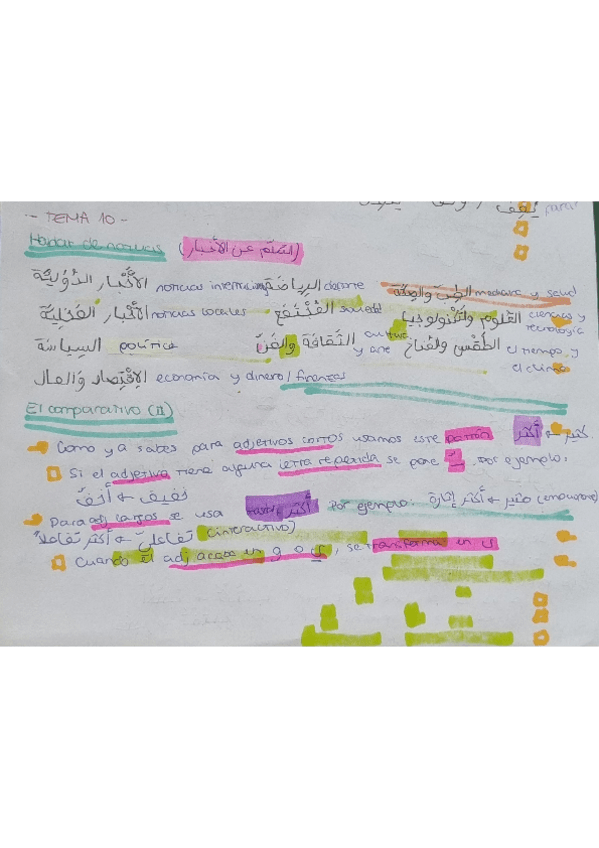 parar
- TEMA 10 -
Hablar de noticias (التكلم عن الأخبار)
الأخبار الدُّوَلِيَّة noticias internacion الرياضة deporte الطب والصحة medicina y salud
الأخبار المَحَلِيَّة noticias locales المُجْتَمَع sociedad العُلوم والتكنولوجيا ciencias y tecnología
السِياسَة política الثَّقافَة والفَنّ cultura y arte الطَقْس والمُناخ el tiempo y el clima
الاِقْتِصاد وَالمال economía y dinero / finanzas
El comparativo (II)
Como ya sabes para adjetivos cortos usamos este patrón كثير ← أكثر
Si el adjetivo tiene alguna letra repetida se pone ّ, por ejemplo:
خفيف ← أخفّ
Para adj largos se usa أكثر, por ejemplo: مثير ← أكثر إثارة (emocionante)
تفاعليّ ← أكثر تفاعلاً (interactivo)
Cuando el adj acaba en و o ي, se transforma en ى